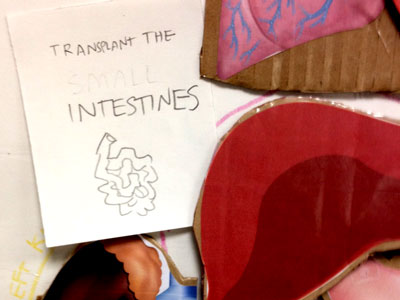 TRANSPLANT THE
SMALL
INTESTINES